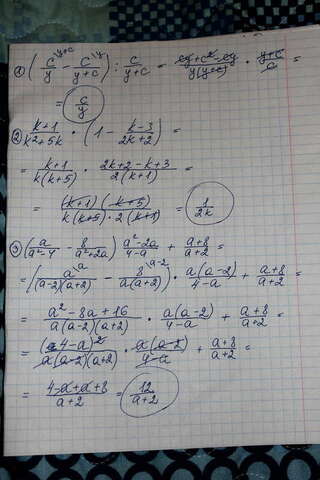 1) (c/y \y+c - c/y+c \y) : c/y+c = cy+c²-cy/y(y+c) · y+c/c =
= c/y
2) k+1/k²+5k · (1 - k-3/2k+2) =
= k+1/k(k+5) · 2k+2-k+3/2(k+1) =
= (k+1)(k+5)/k(k+5)·2(k+1) = 1/2k
3) (a/a²-4 - 8/a²+2a) · a²-2a/4-a + a+8/a+2 =
= (a \a/(a-2)(a+2) - 8 \a-2/a(a+2)) · a(a-2)/4-a + a+8/a+2 =
= a²-8a+16/a(a-2)(a+2) · a(a-2)/4-a + a+8/a+2 =
= (4-a)²/a(a-2)(a+2) · a(a-2)/4-a + a+8/a+2 =
= 4-a+a+8/a+2 = 12/a+2